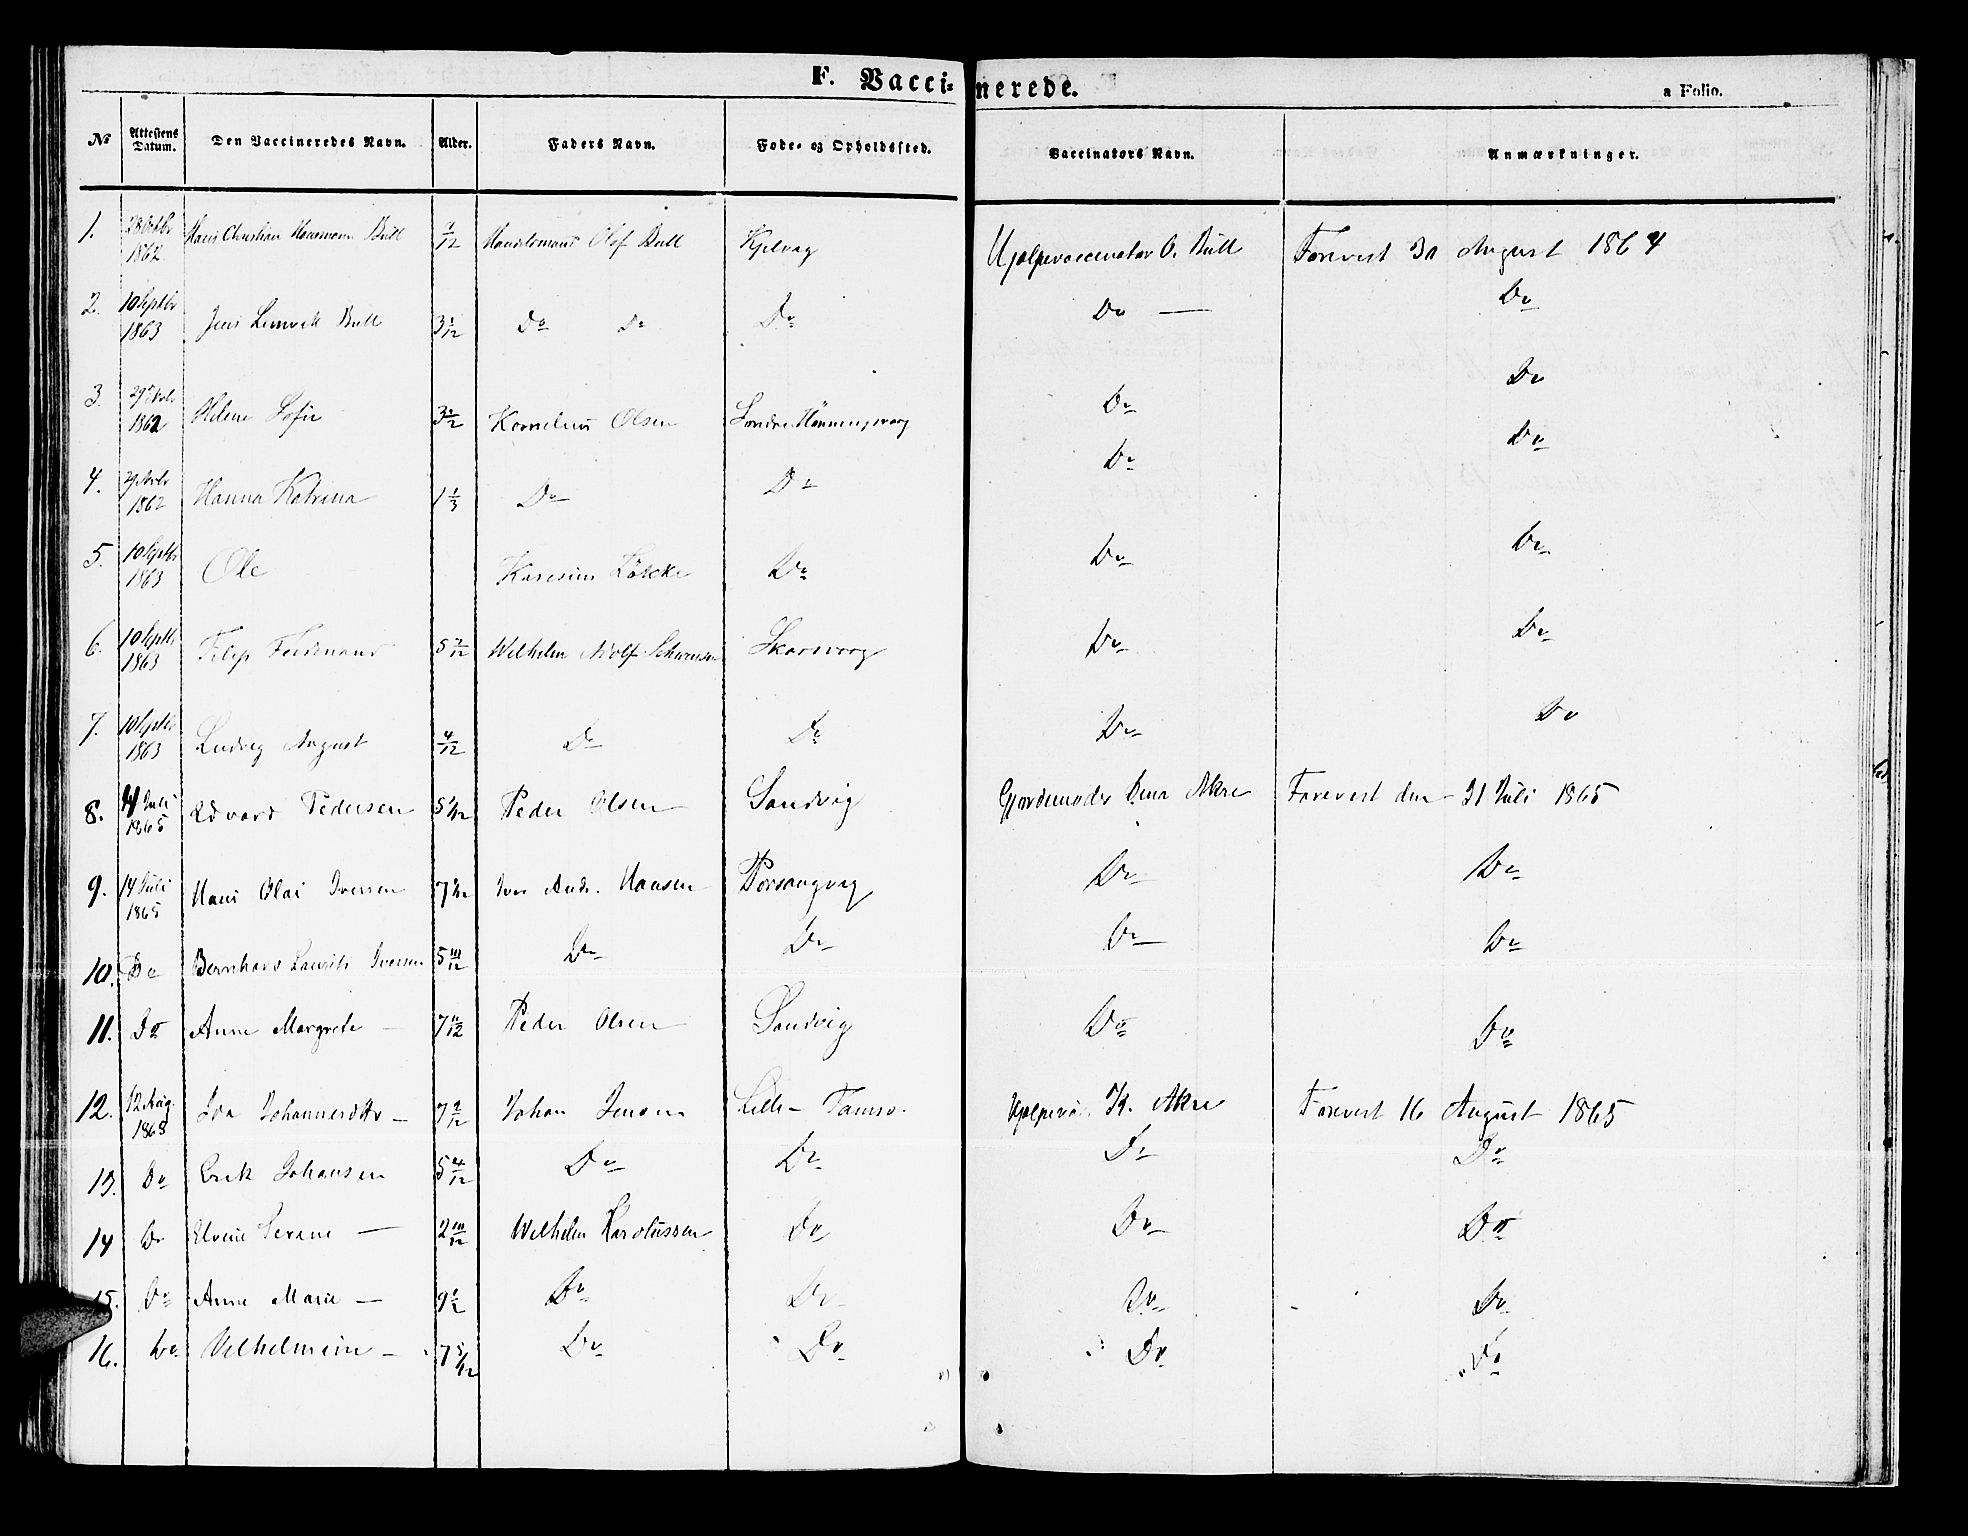 F. Vaccinerede.
a Folio.
№ Attestens Datum. Den Vaccineredes Navn. Alder. Faders Navn. Føde- og Opholdssted. Vaccinators Navn. Anmærkninger.
1. 28 Octbr 1862 Hans Christian Bull 7/12 Handelsmand Olof Bull Kjelvig Hjelpevaccinator O. Bull Forevist 30 August 1864
2. 10 Septbr 1863 Jens Lemvik Bull 3 1/12 Do Do Do Do — Do
3. 29 Novbr 1862 Helene Sofie Kornelius Olsen Søndre Honningsvaag Do Do
4. 29 Novbr 1862 Hanna Katrina 1 1/3 Do Do Do Do
5. 10 Septbr 1863 Ole Do Do Do
6. 10 Septbr 1863 Filip Ferdinand 5 7/12 Wilhelm Adolf Skarsvaag Do Do
7. 10 Septbr 1863 Ludvig August 4/12 Do Do Do Do
8. 14 Juli 1865 Edvard Pedersen Peder Olsen Sandvig Gjordemoder Akre Forevist den 21 Juli 1865
9. 14 Juli 1865 Hans Olai Iversen Iver Andr. Hansen Porsangvig Do Do
10. Do Bernhard Laurits Iversen 5 10/12 Do Do Do Do
11. Do Anne Margrete — 7 11/12 Peder Olsen Sandvig Do Do
12. 12 Aug 1865 Ida Johannesdtr — 7 9/12 Johan Jensen Lille - Tamsø. K. Akre Forevist 16 August 1865
13. Do Erik Johansen 5 4/12 Do Do Do Do
14 Do — 2 10/12 Wilhelm Karolussen Do Do Do
15. Do Anne Marie — 9 1/2 Do Do Do Do
16. Do Vilhelmine — 7 5/12 Do Do Do Do